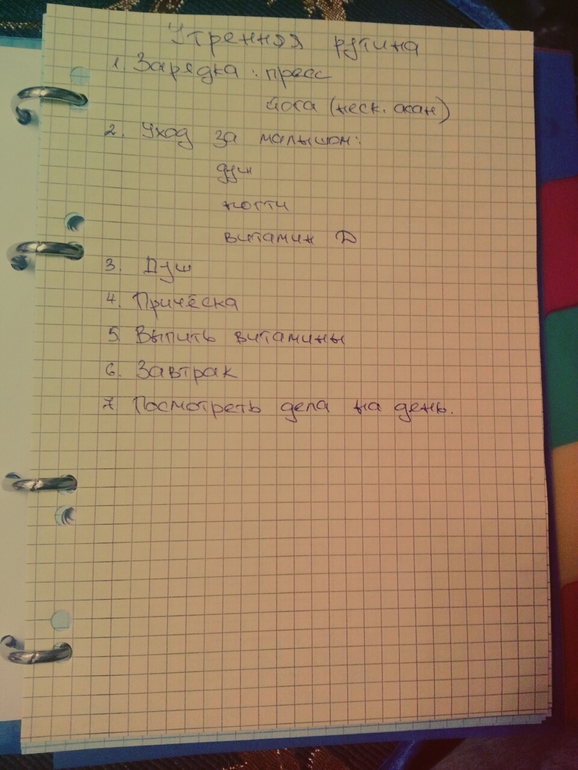 Утренняя рутина
1. Зарядка: пресс
йога (неск. асан)
2. Уход за малышом:
душ
ногти
витамин D
3. Душ
4. Причёска
5 Выпить витамины
6. Завтрак
7 Посмотреть дела на день.